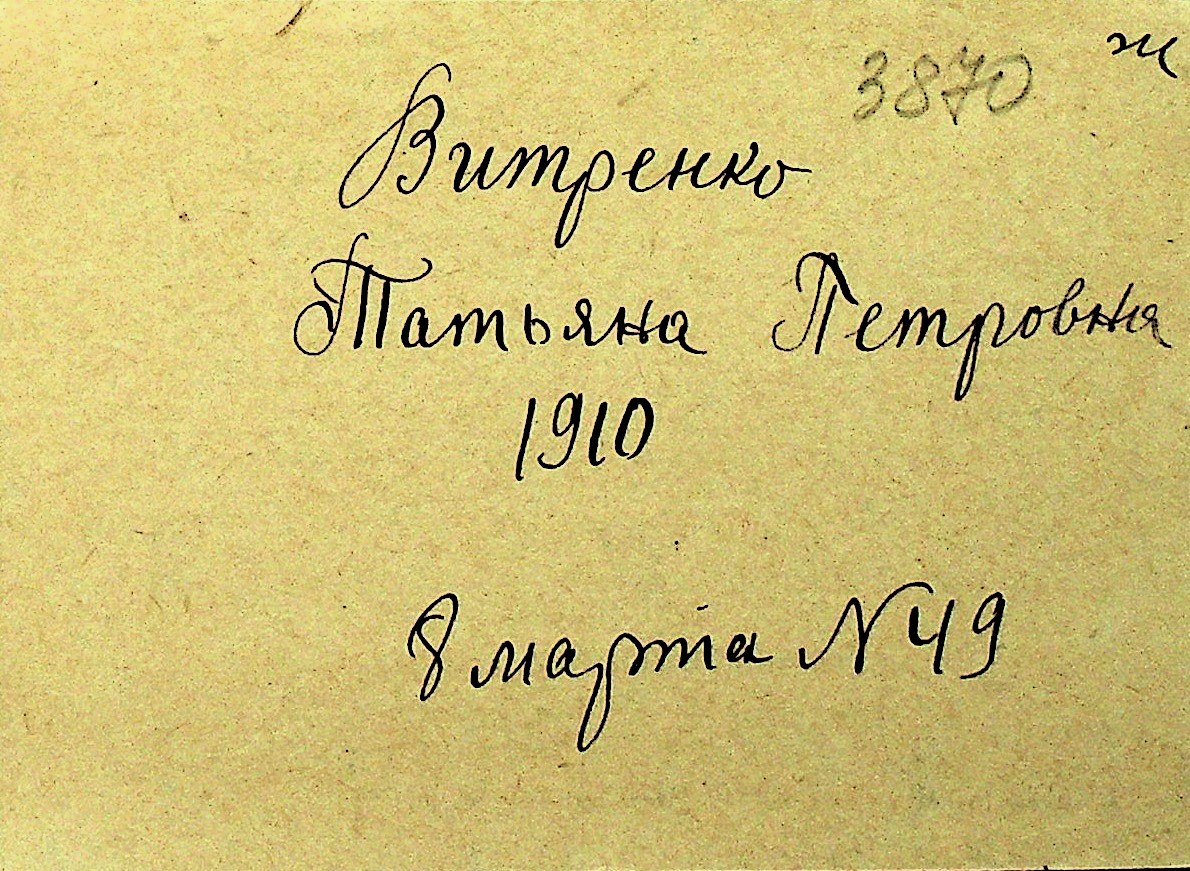 3870 ж
Витренко
Татьяна Петровна
1910
8 марта N 49